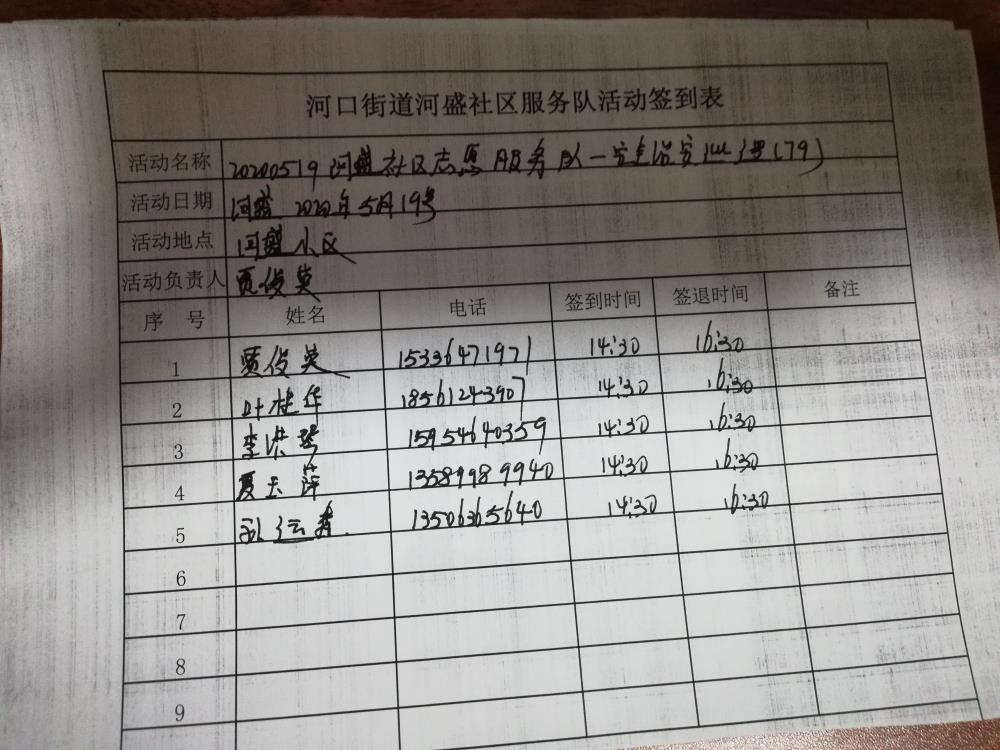 河口街道河盛社区服务队活动签到表
活动名称 20200519河盛社区志愿服务队一安全治安巡逻(79)
活动日期 河盛 2020年5月19号
活动地点 河盛小区
活动负责人 贾俊英
序 号 姓名 电话 签到时间 签退时间 备注
1 贾俊英 15336471971 14:30 16:30
2 叶桂华 18561243907 14:30 16:30
3 李洪琴 15954640359 14:30 16:30
4 夏玉萍 13589989940 14:30 16:30
5 孙运春 13506365640 14:30 16:30
6
7
8
9